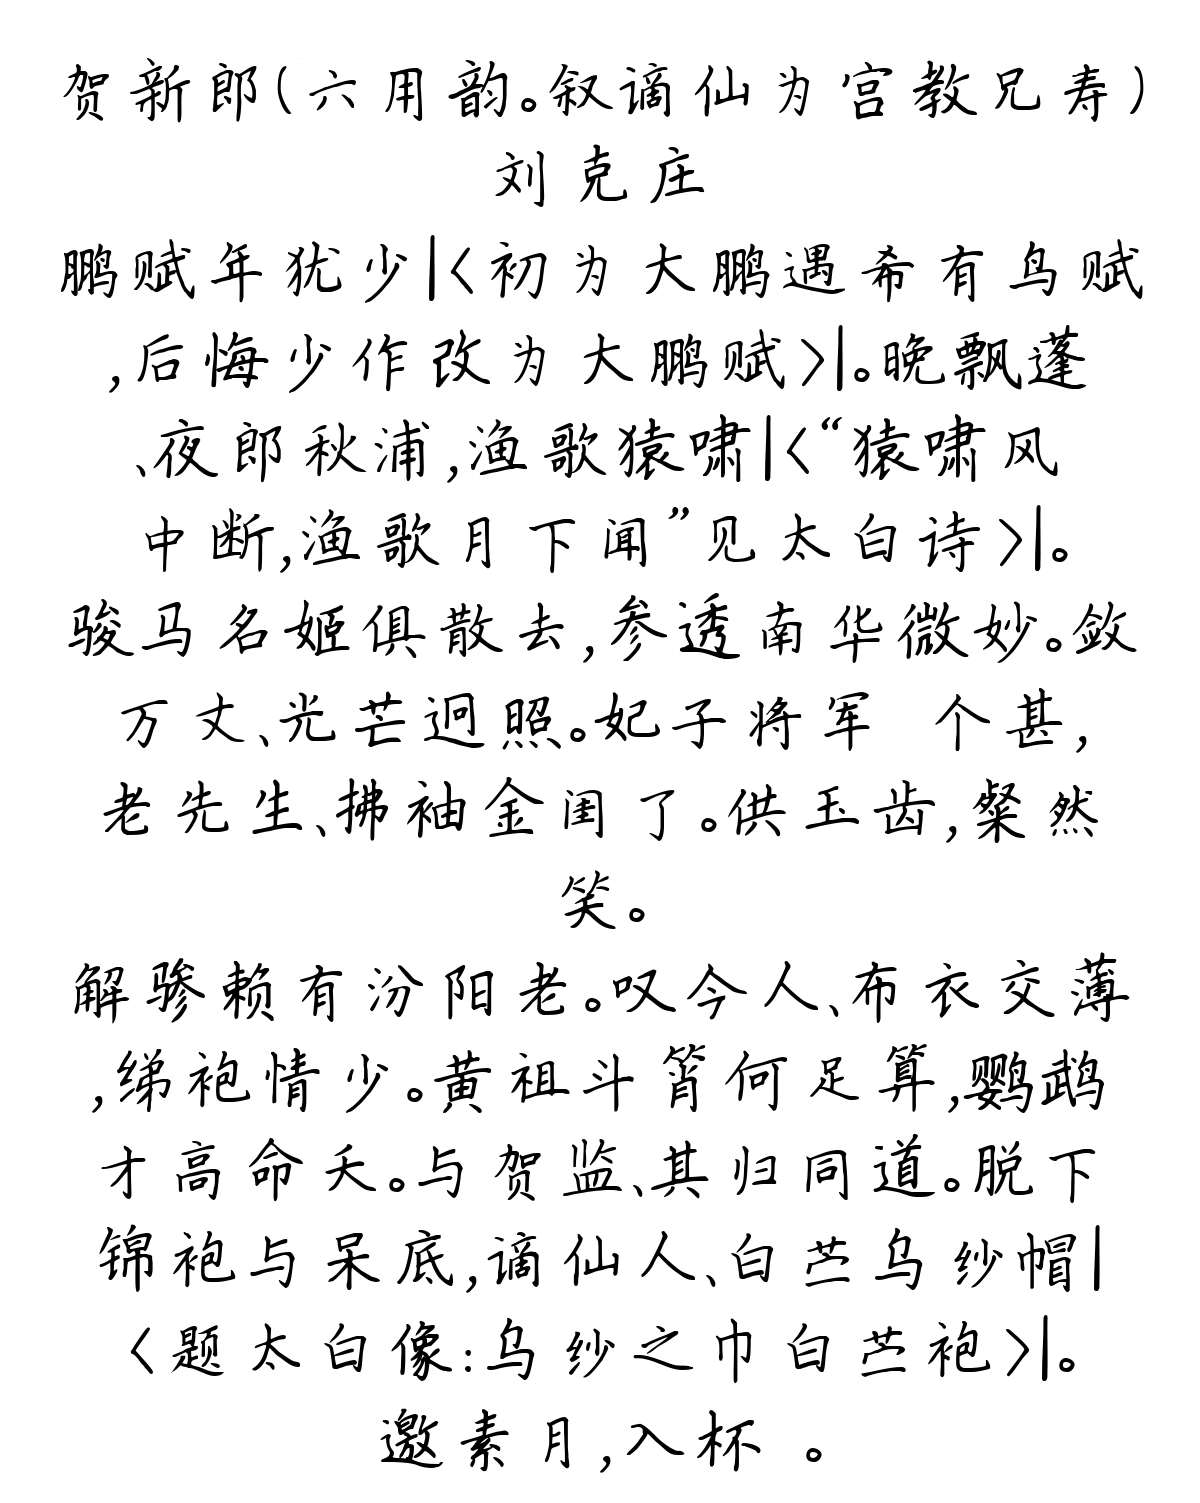 贺新郎(六用韵。叙谪仙为宫教兄寿)
刘克庄
鹏赋年犹少|<初为大鹏遇希有鸟赋
,后悔少作改为大鹏赋>|。晚飘蓬
、夜郎秋浦,渔歌猿啸|<“猿啸风
中断,渔歌月下闻”见太白诗>|。
骏马名姬俱散去,参透南华微妙。敛
万丈、光芒迥照。妃子将军 个甚,
老先生、拂袖金闺了。供玉齿,粲然
笑。
解骖赖有汾阳老。叹今人、布衣交薄
,绨袍情少。黄祖斗筲何足算,鹦鹉
才高命夭。与贺监、其归同道。脱下
锦袍与呆底,谪仙人、白苎乌纱帽|
<题太白像:乌纱之巾白苎袍>|。
邀素月,入杯 。